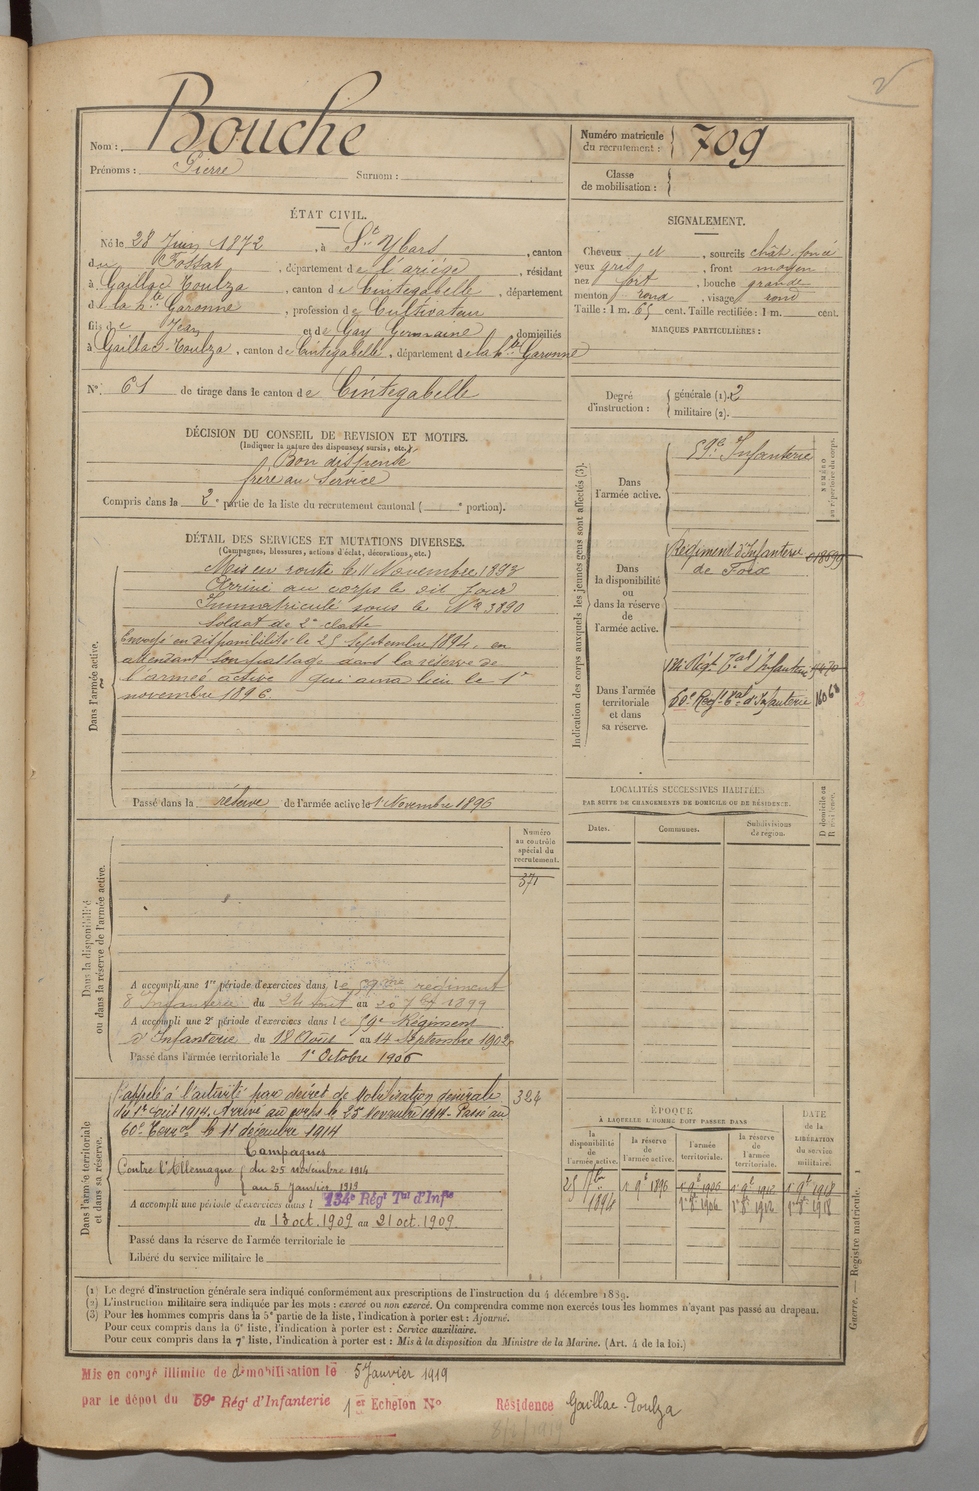 Nom : Bouche
Prénoms : Pierre Surnom :
Numéro matricule du recrutement : 709
Classe de mobilisation :
ÉTAT CIVIL.
Né le 28 Juin 1872, à St Ybars, canton
du Fossat, département de l'ariège, résidant
à Gaillac Toulza, canton de Cintegabelle, département
de la hte Garonne, profession de Cultivateur
fils de Jean et de Gay Germaine domiciliés
à Gaillac-Toulza, canton de Cintegabelle, département de la hte Garonne
N° 61 de tirage dans le canton de Cintegabelle
SIGNALEMENT.
Cheveux et, sourcils chât. foncé
yeux gris, front moyen
nez fort, bouche grande
menton rond, visage rond
Taille : 1 m. 65 cent. Taille rectifiée : 1 m. cent.
MARQUES PARTICULIÈRES :
Degré d'instruction : générale (1). 2
militaire (2).
DÉCISION DU CONSEIL DE REVISION ET MOTIFS.
(Indiquer la nature des dispenses, sursis, etc.)
Bon dispensé
frère au Service
Compris dans la 2e partie de la liste du recrutement cantonal ( e portion).
DÉTAIL DES SERVICES ET MUTATIONS DIVERSES.
(Campagnes, blessures, actions d'éclat, décorations, etc.)
Dans l'armée active.
Mis en route le 11 Novembre 1893
Arrivé au corps le dit jour
Immatriculé sous le No 3890
Soldat de 2e classe
Envoyé en disponibilité le 25 Septembre 1894, en
attendant son passage dans la réserve de
l'armée active qui aura lieu le 1er
novembre 1896.
Passé dans la réserve de l'armée active le 1 Novembre 1896
Indication des corps auxquels les jeunes gens sont affectés (3).
NUMÉRO au répertoire du corps.
Dans l'armée active.
59e Infanterie
Dans la disponibilité ou dans la réserve de l'armée active.
Régiment d'Infanterie
de Foix
Dans l'armée territoriale et dans sa réserve.
134e Régt Tal d'Infanterie
60e Regt Tal d'Infanterie 16068
LOCALITÉS SUCCESSIVES HABITÉES
PAR SUITE DE CHANGEMENTS DE DOMICILE OU DE RÉSIDENCE.
Dates. Communes. Subdivisions de région. D domicile ou R résidence.
Dans la disponibilité ou dans la réserve de l'armée active.
Numéro au contrôle spécial du recrutement.
371
A accompli une 1re période d'exercices dans le 59ème régiment
d'Infanterie du 24 Aout au 20 7bre 1899
A accompli une 2e période d'exercices dans le 59e Régiment
d'Infanterie du 18 Août au 14 Septembre 1902
Passé dans l'armée territoriale le 1er Octobre 1906
Dans l'armée territoriale et dans sa réserve.
324
Rappelé à l'activité par décret de Mobilisation Générale
du 1er Août 1914. Arrivé au corps le 25 Novembre 1914 - Passé au
60e Terral le 11 décembre 1914
Campagnes
Contre l'Allemagne du 25 novembre 1914
au 5 Janvier 1919
A accompli une période d'exercices dans l 134e Régt Tal d'Infie
du 13 oct. 1909 au 21 oct. 1909.
Passé dans la réserve de l'armée territoriale le
Libéré du service militaire le
ÉPOQUE À LAQUELLE L'HOMME DOIT PASSER DANS
la disponibilité de l'armée active. la réserve de l'armée active. l'armée territoriale. la réserve de l'armée territoriale. DATE de la LIBÉRATION du service militaire.
25 7bre 1894 1 9e 1896 1 9e 1906 1 9e 1912 1 9e 1918
1er 8e 1906 1er 8e 1912 1er 8e 1918
(1) Le degré d'instruction générale sera indiqué conformément aux prescriptions de l'instruction du 4 décembre 1889.
(2) L'instruction militaire sera indiquée par les mots : exercé ou non exercé. On comprendra comme non exercés tous les hommes n'ayant pas passé au drapeau.
(3) Pour les hommes compris dans la 5e partie de la liste, l'indication à porter est : Ajourné.
Pour ceux compris dans la 6e liste, l'indication à porter est : Service auxiliaire.
Pour ceux compris dans la 7e liste, l'indication à porter est : Mis à la disposition du Ministre de la Marine. (Art. 4 de la loi.)
Guerre. — Registre matricule. 1
Mis en congé illimité de démobilisation le 5 Janvier 1919
par le dépot du 59e Régt d'Infanterie 1er Echelon No Résidence Gaillac-Toulza